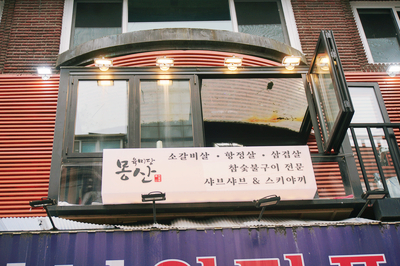 육비담
몽산
소갈비살 · 항정살 · 삼겹살
참숯불구이 전문
샤브샤브 & 스키야끼